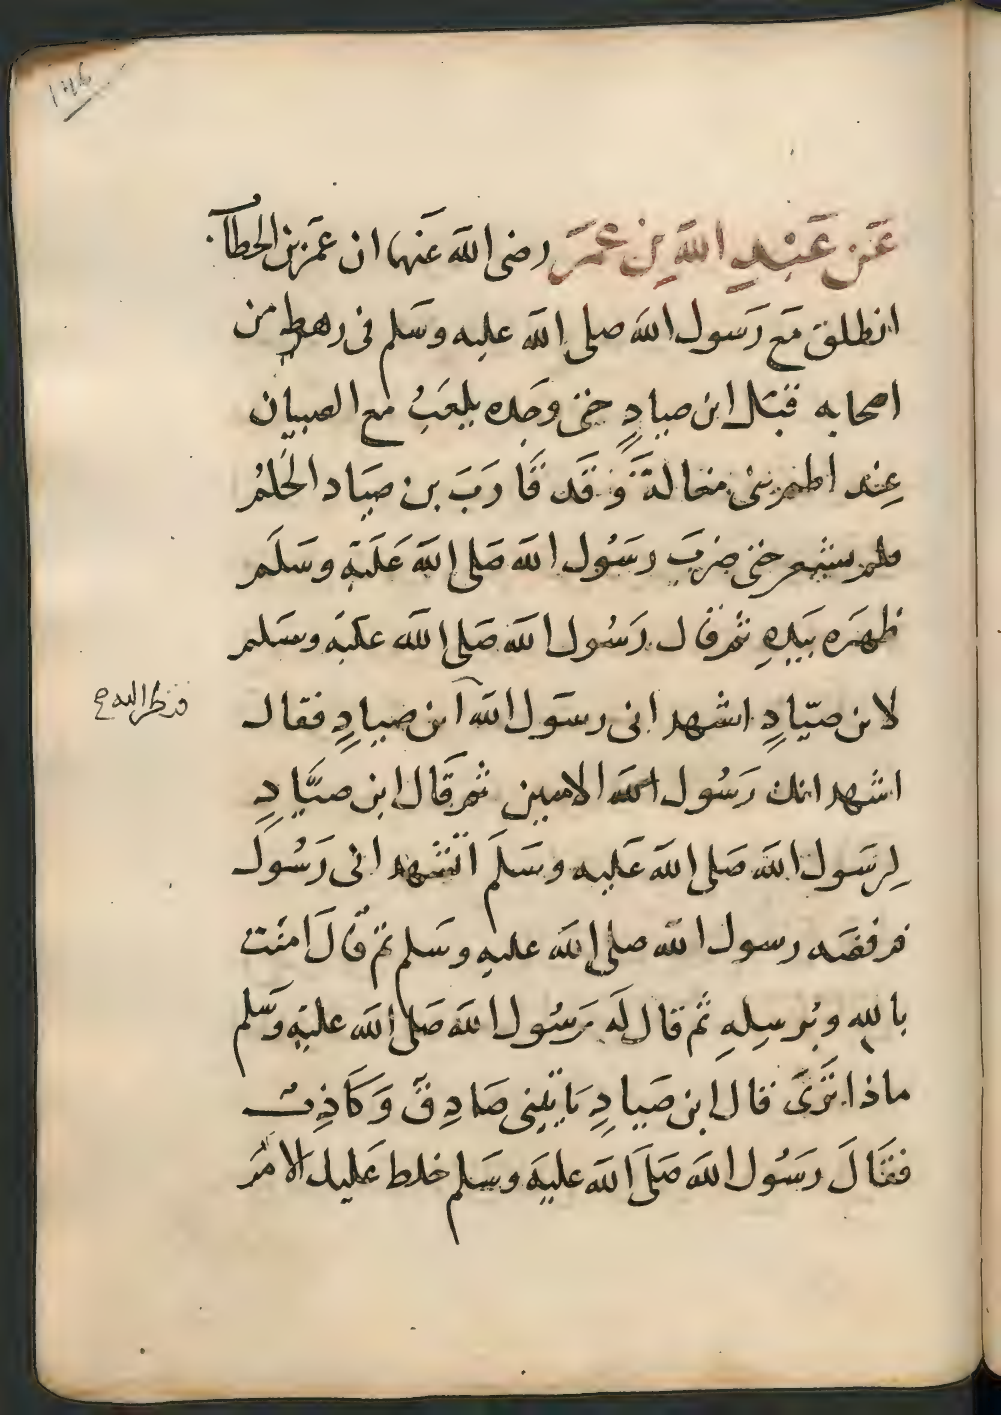 عَن عَبْدِ اللهِ بِن عُمَرَ رضى الله عَنهما ان عمَر بن الخطاب
انطلق مَع رَسول الله صلى الله عليه وسَلم فى رهط من
اصحابه قبَل ابن صيادٍ حتى وجَده يلعَبُ مع الصبيان
عِند اطم بنى مغالةَ وَقَد قَارَبَ بن صَيَاد الحَلمُ
فلم يشعر حتى ضرَبَ رسَوُل الله صَلى الله عَليَهِ وسَلَم
ظهرَه بيَدِهِ ثم قال رَسُول الله صَلى الله عليَه وسَلم
لابن صيّادٍ اشهد انى رسَول الله ابن صيادٍ فقال
فنظر اليه
اشهد انك رَسُول الله الاميين ثم قَال ابن صَيَّادِ
لِرسَول الله صَلى الله عَليه وسَلَم اتشهد انى رَسُول
فرفضَه رسول الله صلى الله عليهِ وسَلم ثم قَالَ امنَت
بالله وبُرسِلهِ ثم قال لَه رَسُول الله صَلى الله عليَهِ وسَلم
ماذا تَرَى قال ابن صَيادِ يَاتينِى صَادِق وَكَاذِبُ
فقَالَ رَسُول الله صَلَى الله عليَه وسَلم خلط عَليك الامُر